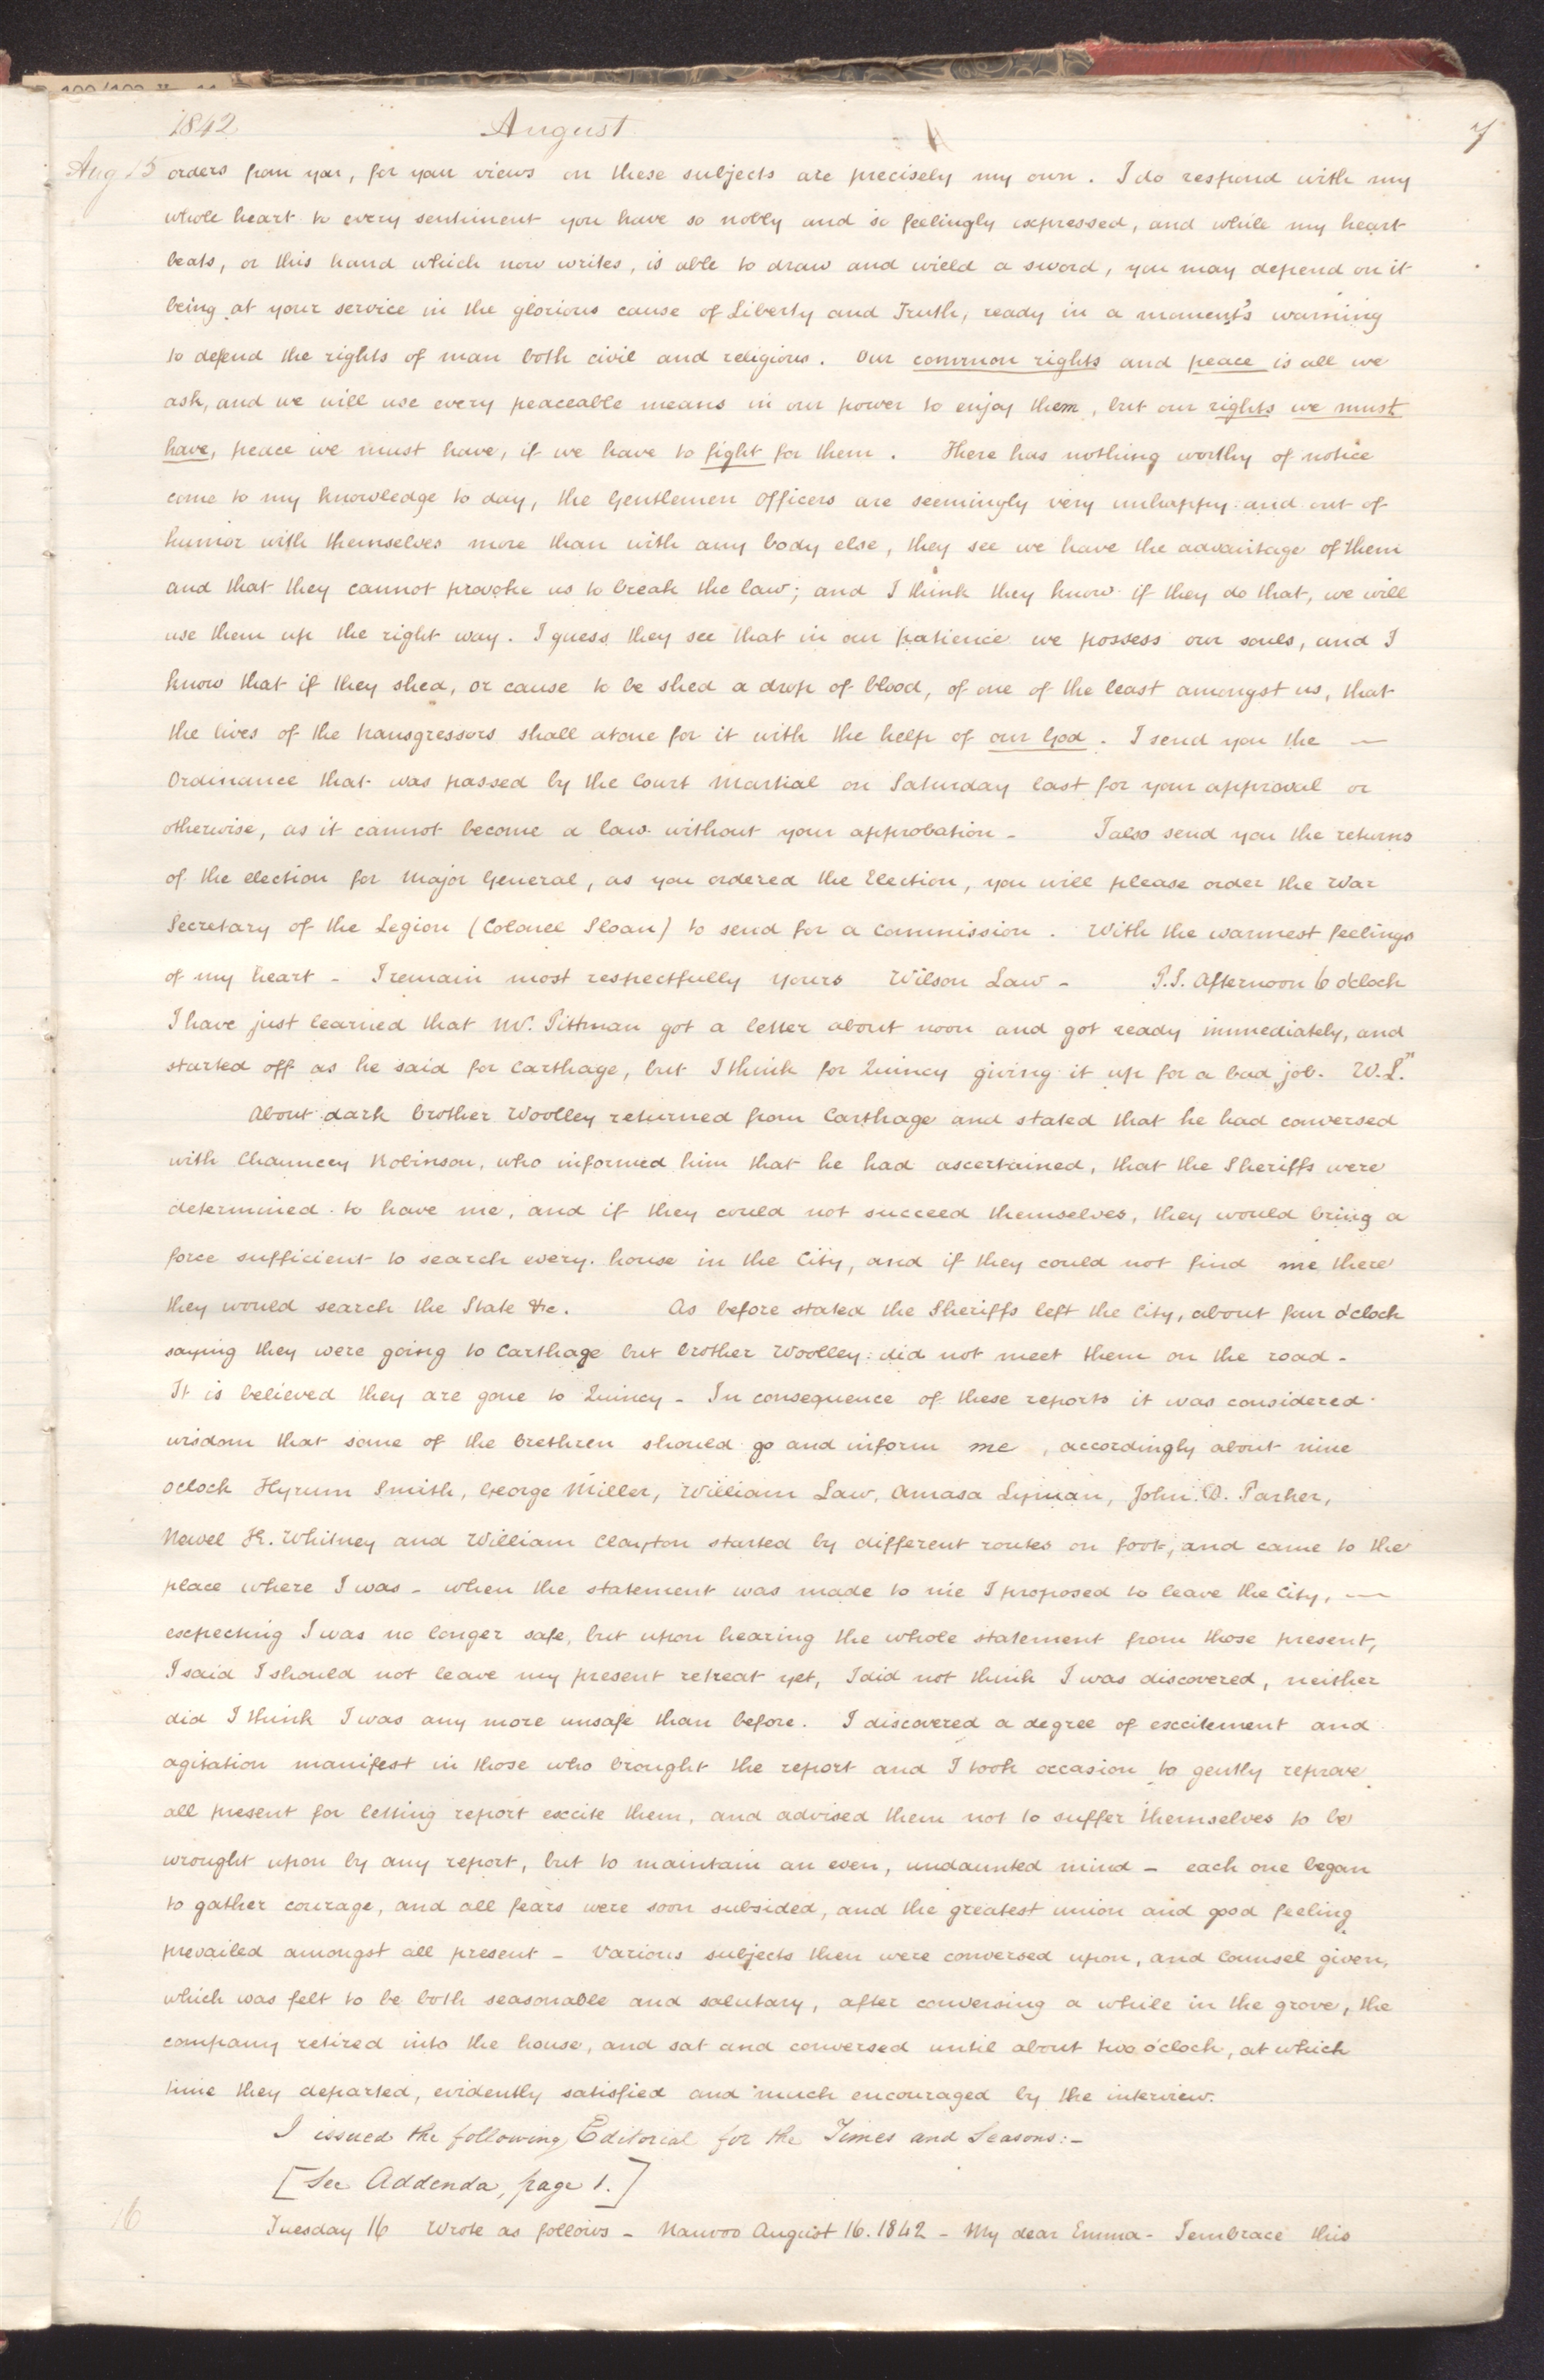 1842 August 7
Aug 15 orders from you, for your views on these subjects are precisely my own. I do respond with my
whole heart to every sentiment you have so nobly and so feelingly expressed, and while my heart
beats, or this hand which now writes, is able to draw and wield a sword, you may depend on it
being at your service in the glorious cause of Liberty and Truth, ready in a moment's warning
to defend the rights of man both civil and religious. Our common rights and peace is all we
ask, and we will use every peaceable means in our power to enjoy them, but our rights we must
have, peace we must have, if we have to fight for them. There has nothing worthy of notice
come to my knowledge to day, the Gentlemen Officers are seemingly very unhappy and out of
humor with themselves more than with any body else, they see we have the advantage of them
and that they cannot provoke us to break the law; and I think they know if they do that, we will
use them up the right way. I guess they see that in our patience we possess our souls, and I
know that if they shed, or cause to be shed a drop of blood, of one of the least amongst us, that
the lives of the transgressors shall atone for it with the help of our God. I send you the —
Ordinance that was passed by the Court Martial on Saturday last for your approval or
otherwise, as it cannot become a law without your approbation - I also send you the returns
of the election for Major General, as you ordered the Election, you will please order the War
Secretary of the Legion (Colonel Sloan) to send for a Commission. With the warmest feelings
of my heart - I remain most respectfully yours Wilson Law - P.S. Afternoon 6 o'clock
I have just learned that Mr. Pittman got a letter about noon and got ready immediately, and
started off as he said for Carthage, but I think for Quincy giving it up for a bad job. W.L."
About dark brother Woolley returned from Carthage and stated that he had conversed
with Chauncey Robinson, who informed him that he had ascertained, that the Sheriffs were
determined to have me, and if they could not succeed themselves, they would bring a
force sufficient to search every house in the City, and if they could not find me there
they would search the State &c. As before stated the Sheriffs left the City, about four o'clock
saying they were going to Carthage but brother Woolley did not meet them on the road -
It is believed they are gone to Quincy - In consequence of these reports it was considered
wisdom that some of the brethren should go and inform me, accordingly about nine
oclock Hyrum Smith, George Miller, William Law, Amasa Lyman, John D. Parker,
Newel K. Whitney and William Clayton started by different routes on foot, and came to the
place where I was - when the statement was made to me I proposed to leave the City, —
expecting I was no longer safe, but upon hearing the whole statement from those present,
I said I should not leave my present retreat yet, I did not think I was discovered, neither
did I think I was any more unsafe than before. I discovered a degree of excitement and
agitation manifest in those who brought the report and I took occasion to gently reprove
all present for letting report excite them, and advised them not to suffer themselves to be
wrought upon by any report, but to maintain an even, undaunted mind - each one began
to gather courage, and all fears were soon subsided, and the greatest union and good feeling
prevailed amongst all present - Various subjects then were conversed upon, and Counsel given,
which was felt to be both seasonable and salutary, after conversing a while in the grove, the
company retired into the house, and sat and conversed until about two o'clock, at which
time they departed, evidently satisfied and much encouraged by the interview.
I issued the following Editorial for the Times and Seasons:-
[See Addenda, page 1.]
16 Tuesday 16 Wrote as follows - Nauvoo August 16. 1842 - My dear Emma - I embrace this